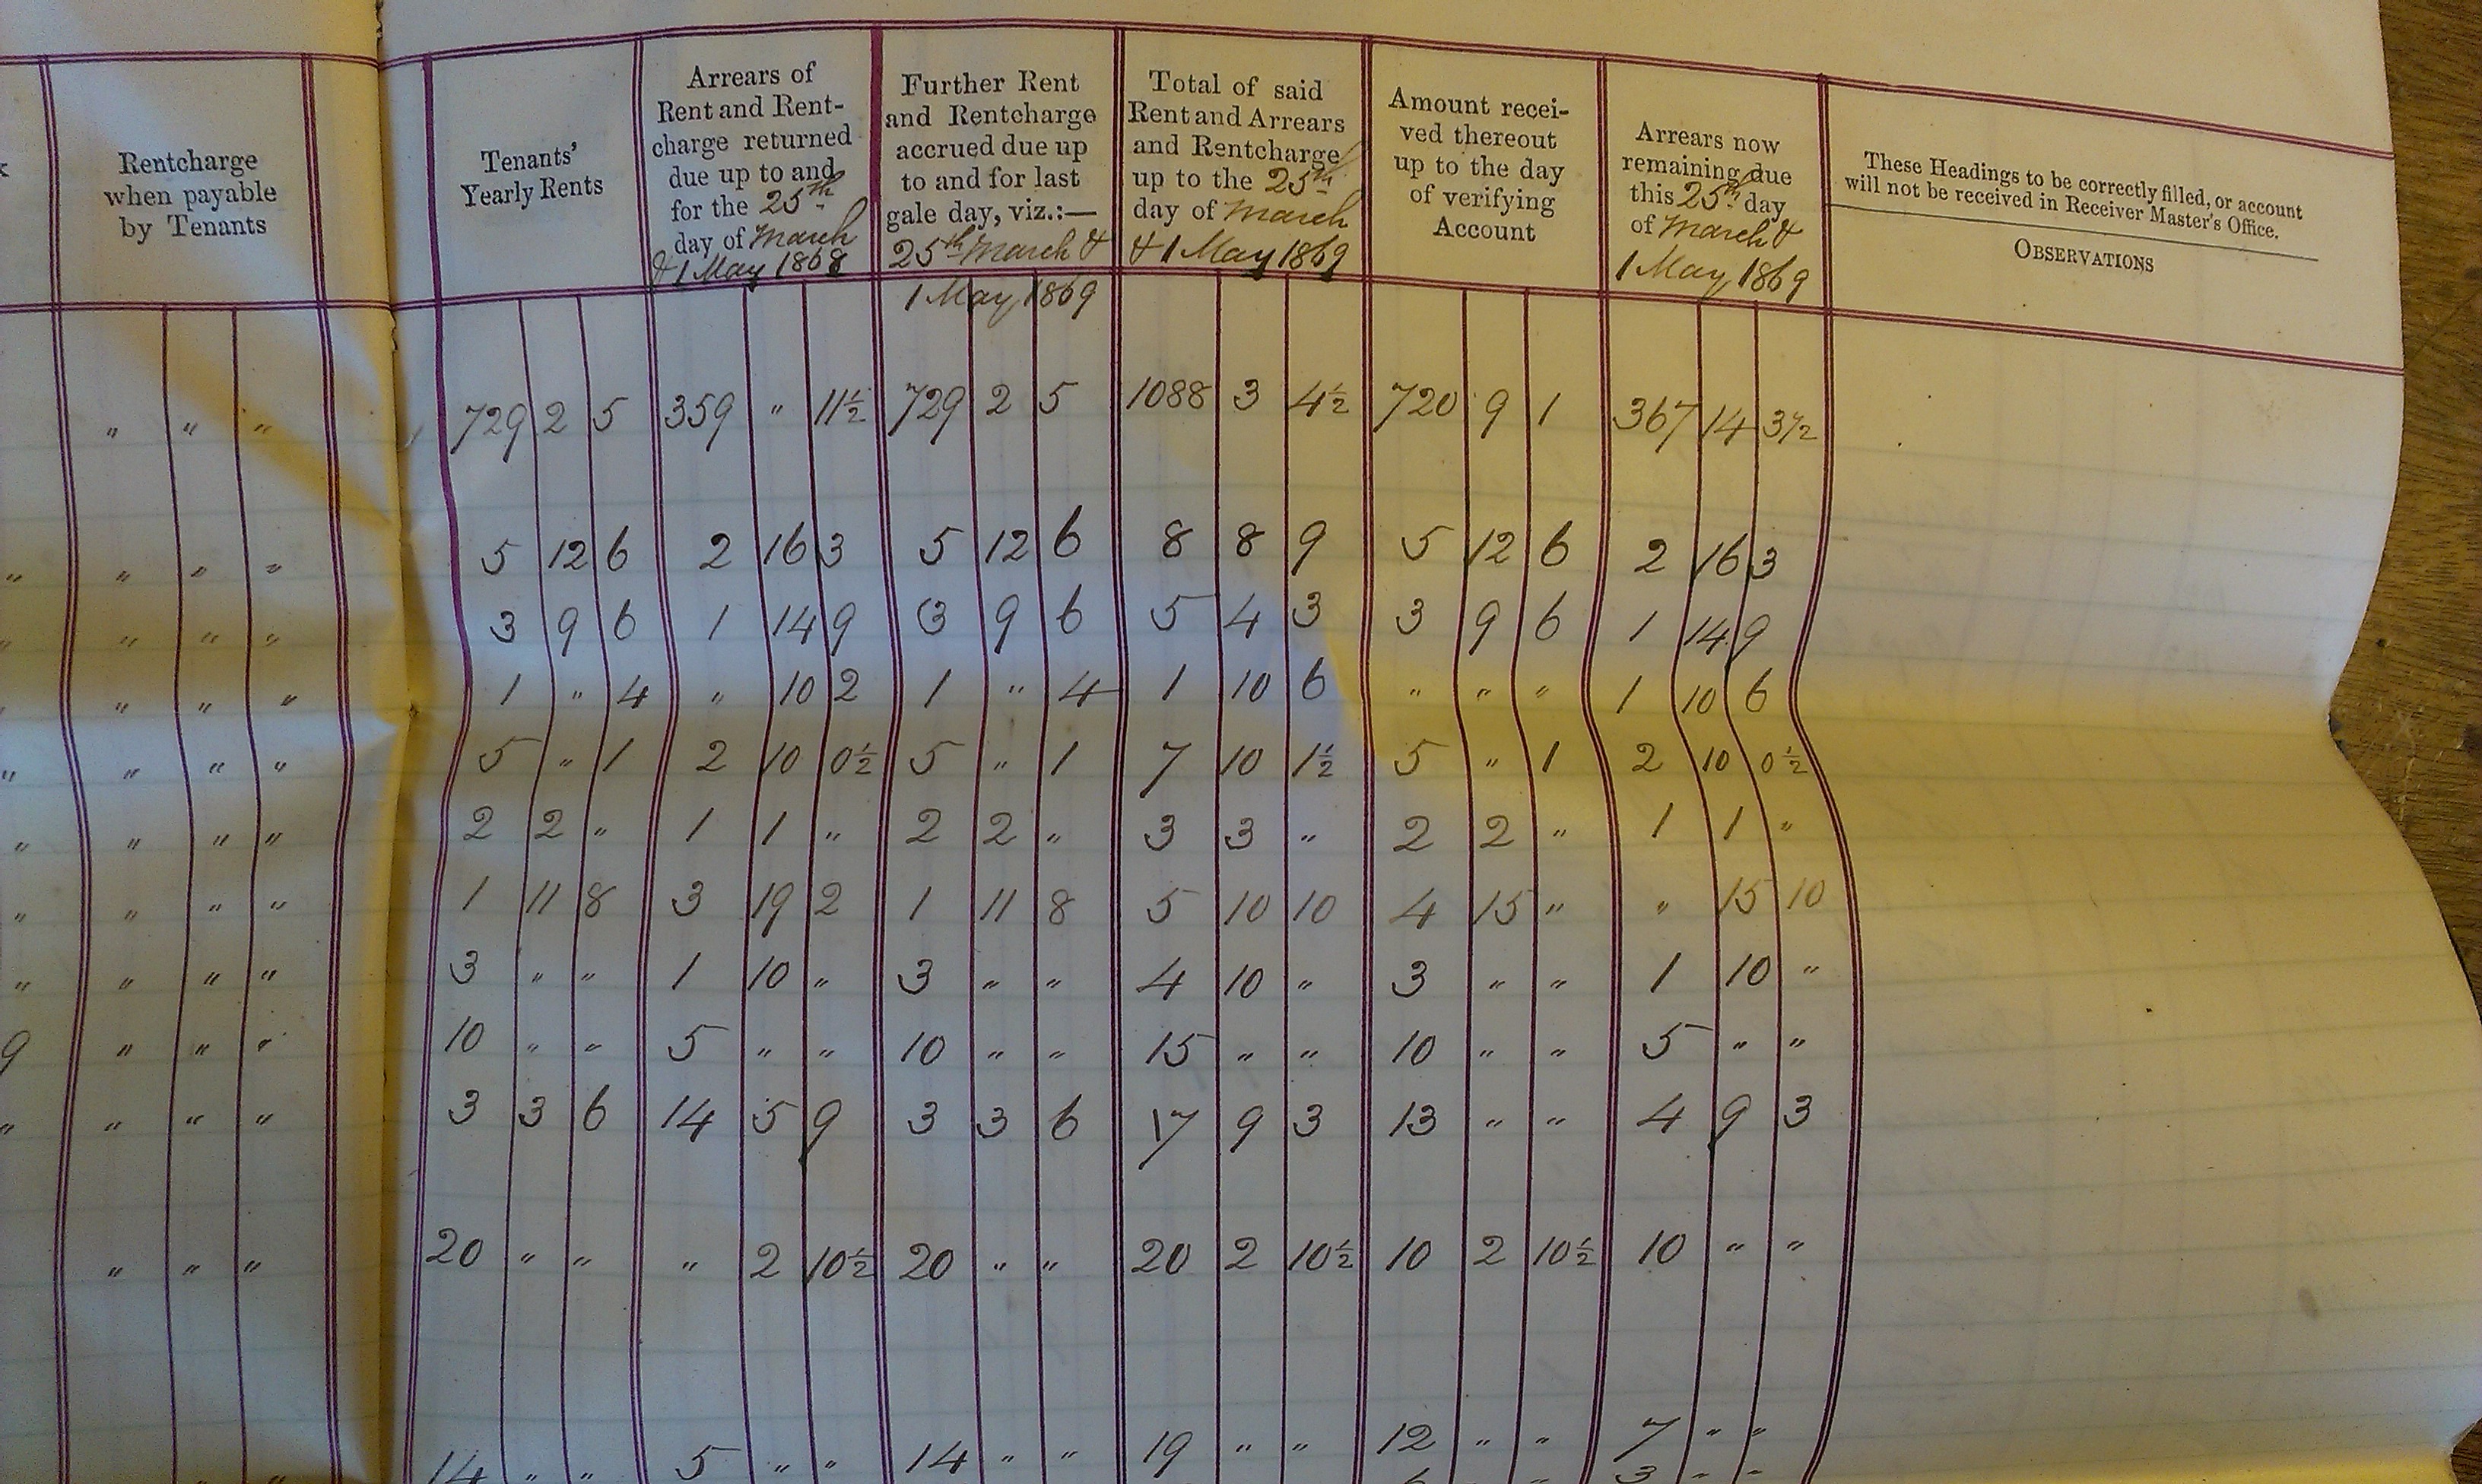 Rentcharge
when payable
by Tenants
Tenants'
Yearly Rents
Arrears of
Rent and Rent-
charge returned
due up to and
for the 25th
day of March
& 1 May 1868
Further Rent
and Rentcharge
accrued due up
to and for last
gale day, viz.:—
25th March &
1 May 1869
Total of said
Rent and Arrears
and Rentcharge
up to the 25th
day of March
& 1 May 1869
Amount recei-
ved thereout
up to the day
of verifying
Account
Arrears now
remaining due
this 25th day
of March &
1 May 1869
These Headings to be correctly filled, or account
will not be received in Receiver Master's Office.
OBSERVATIONS
" " " 729 2 5 359 " 11½ 729 2 5 1088 3 4½ 720 9 1 367 14 3½
" " " " 5 12 6 2 16 3 5 12 6 8 8 9 5 12 6 2 16 3
" " " " 3 9 6 1 14 9 3 9 6 5 4 3 3 9 6 1 14 9
" " " " 1 " 4 " 10 2 1 " 4 1 10 6 " " " 1 10 6
" " " " 5 " 1 2 10 0½ 5 " 1 7 10 1½ 5 " 1 2 10 0½
" " " " 2 2 " 1 1 " 2 2 " 3 3 " 2 2 " 1 1 "
" " " " 1 11 8 3 19 2 1 11 8 5 10 10 4 15 " " 15 10
" " " " 3 " " 1 10 " 3 " " 4 10 " 3 " " 1 10 "
9 " " " 10 " " 5 " " 10 " " 15 " " 10 " " 5 " "
" " " " 3 3 6 14 5 9 3 3 6 17 9 3 13 " " 4 9 3
" " " 20 " " " 2 10½ 20 " " 20 2 10½ 10 2 10½ 10 " "
14 " " 5 " " 14 " " 19 " " 12 " " 7 " "